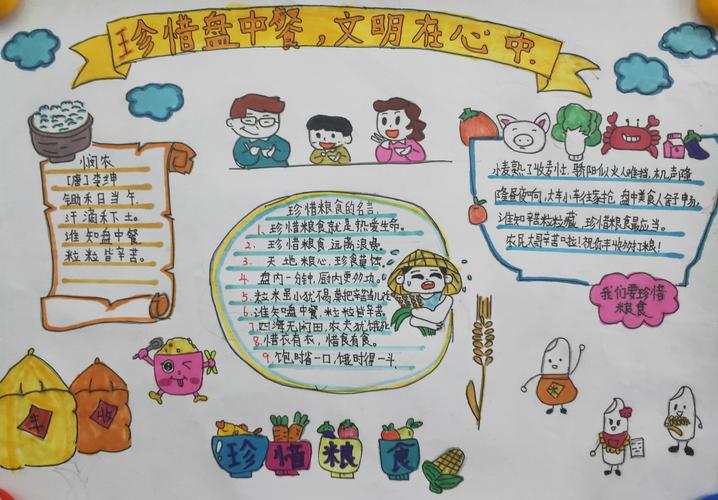 珍惜盘中餐,文明在心中
悯农
[唐]李绅
锄禾日当午,
汗滴禾下土。
谁知盘中餐
粒粒皆辛苦。
珍惜粮食的名言
1、珍惜粮食就是热爱生命。
2、珍惜粮食,远离浪费。
3、天地粮心,珍食莫饮。
4、盘内一分钟,厨内更多功。
5、粒米虽小犹不易,莫把辛苦当儿
6、谁知盘中餐,粒粒皆辛苦。
7、四海无闲田,农夫犹饿死
8、惜衣有衣,惜食有食。
9、饱时省一口,饿时得一斗.
小麦熟了收麦忙,骄阳似火人难挡,机声隆
隆昼夜响,大车小车往家
谁知 粒粒藏,珍惜粮食最应当。
农民大哥辛苦啦!祝你丰收 打粮!
我们要珍惜
粮食
丰 收
米
珍 惜 粮 食